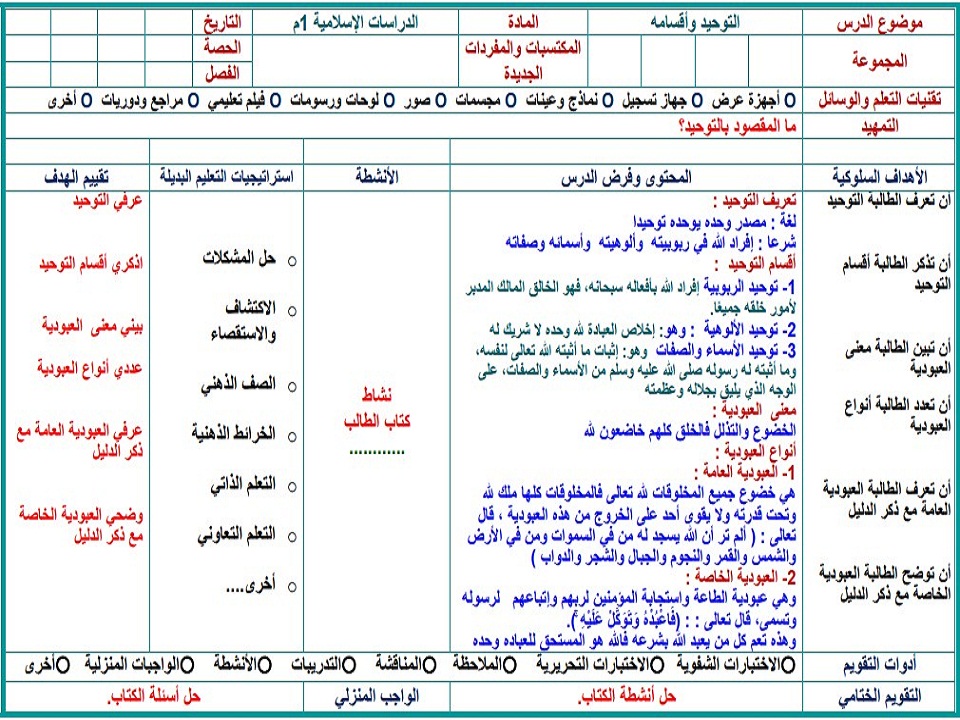 موضوع الدرس التوحيد وأقسامه المادة الدراسات الإسلامية 1م التاريخ
المجموعة المكتسبات والمفردات الجديدة الحصة
الفصل
تقنيات التعلم والوسائل o أجهزة عرض o جهاز تسجيل o نماذج وعينات o مجسمات o صور o لوحات ورسومات o فيلم تعليمي o مراجع ودوريات o أخرى
التمهيد ما المقصود بالتوحيد؟
الأهداف السلوكية المحتوى وفرض الدرس الأنشطة استراتيجيات التعليم البديلة تقييم الهدف
أن تعرف الطالبة التوحيد
أن تذكر الطالبة أقسام
التوحيد
أن تبين الطالبة معنى
العبودية
أن تعدد الطالبة أنواع
العبودية
أن تعرف الطالبة العبودية
العامة مع ذكر الدليل
أن توضح الطالبة العبودية
الخاصة مع ذكر الدليل
تعريف التوحيد :
لغة : مصدر وحده يوحده توحيدا
شرعا : إفراد الله في ربوبيته وألوهيته وأسمائه وصفاته
أقسام التوحيد :
1- توحيد الربوبية إفراد الله بأفعاله سبحانه، فهو الخالق المالك المدبر
لأمور خلقه جميعًا.
2- توحيد الألوهية : وهو: إخلاص العبادة لله وحده لا شريك له
3- توحيد الأسماء والصفات وهو: إثبات ما أثبته الله تعالى لنفسه،
وما أثبته له رسوله صلى الله عليه وسلم من الأسماء والصفات، على
الوجه الذي يليق بجلاله وعظمته
معنى العبودية :
الخضوع والتذلل فالخلق كلهم خاضعون لله
أنواع العبودية :
1- العبودية العامة :
هي خضوع جميع المخلوقات لله تعالى فالمخلوقات كلها ملك لله
وتحت قدرته ولا يقوى أحد على الخروج من هذه العبودية ، قال
تعالى : ( ألم تر أن الله يسجد له من في السموات ومن في الأرض
والشمس والقمر والنجوم والجبال والشجر والدواب )
2- العبودية الخاصة :
وهي عبودية الطاعة واستجابة المؤمنين لربهم وإتباعهم لرسوله
وتسمى، قال تعالى : : (فَاعْبُدْهُ وَتَوَكَّلْ عَلَيْهِ ۚ).
وهذه تعم كل من يعبد الله بشرعه فالله هو المستحق للعباده وحده
نشاط
كتاب الطالب
............
o حل المشكلات
o الاكتشاف
والاستقصاء
o الصف الذهني
o الخرائط الذهنية
o التعلم الذاتي
o التعلم التعاوني
o أخرى....
عرفي التوحيد
اذكري أقسام التوحيد
بيني معنى العبودية
عددي أنواع العبودية
عرفي العبودية العامة مع
ذكر الدليل
وضحي العبودية الخاصة
مع ذكر الدليل
أدوات التقويم oالاختبارات الشفوية oالاختبارات التحريرية oالملاحظة oالمناقشة oالتدريبات oالأنشطة oالواجبات المنزلية oأخرى
التقويم الختامي حل أنشطة الكتاب. الواجب المنزلي حل أسئلة الكتاب.